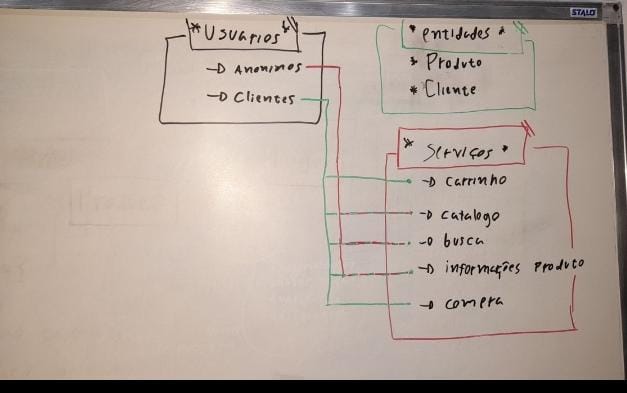 STALO
* Usuarios *
→ Anonimos
→ Clientes
* entidades *
* Produto
* Cliente
* Serviços *
→ carrinho
→ catalogo
→ busca
→ informações produto
→ compra